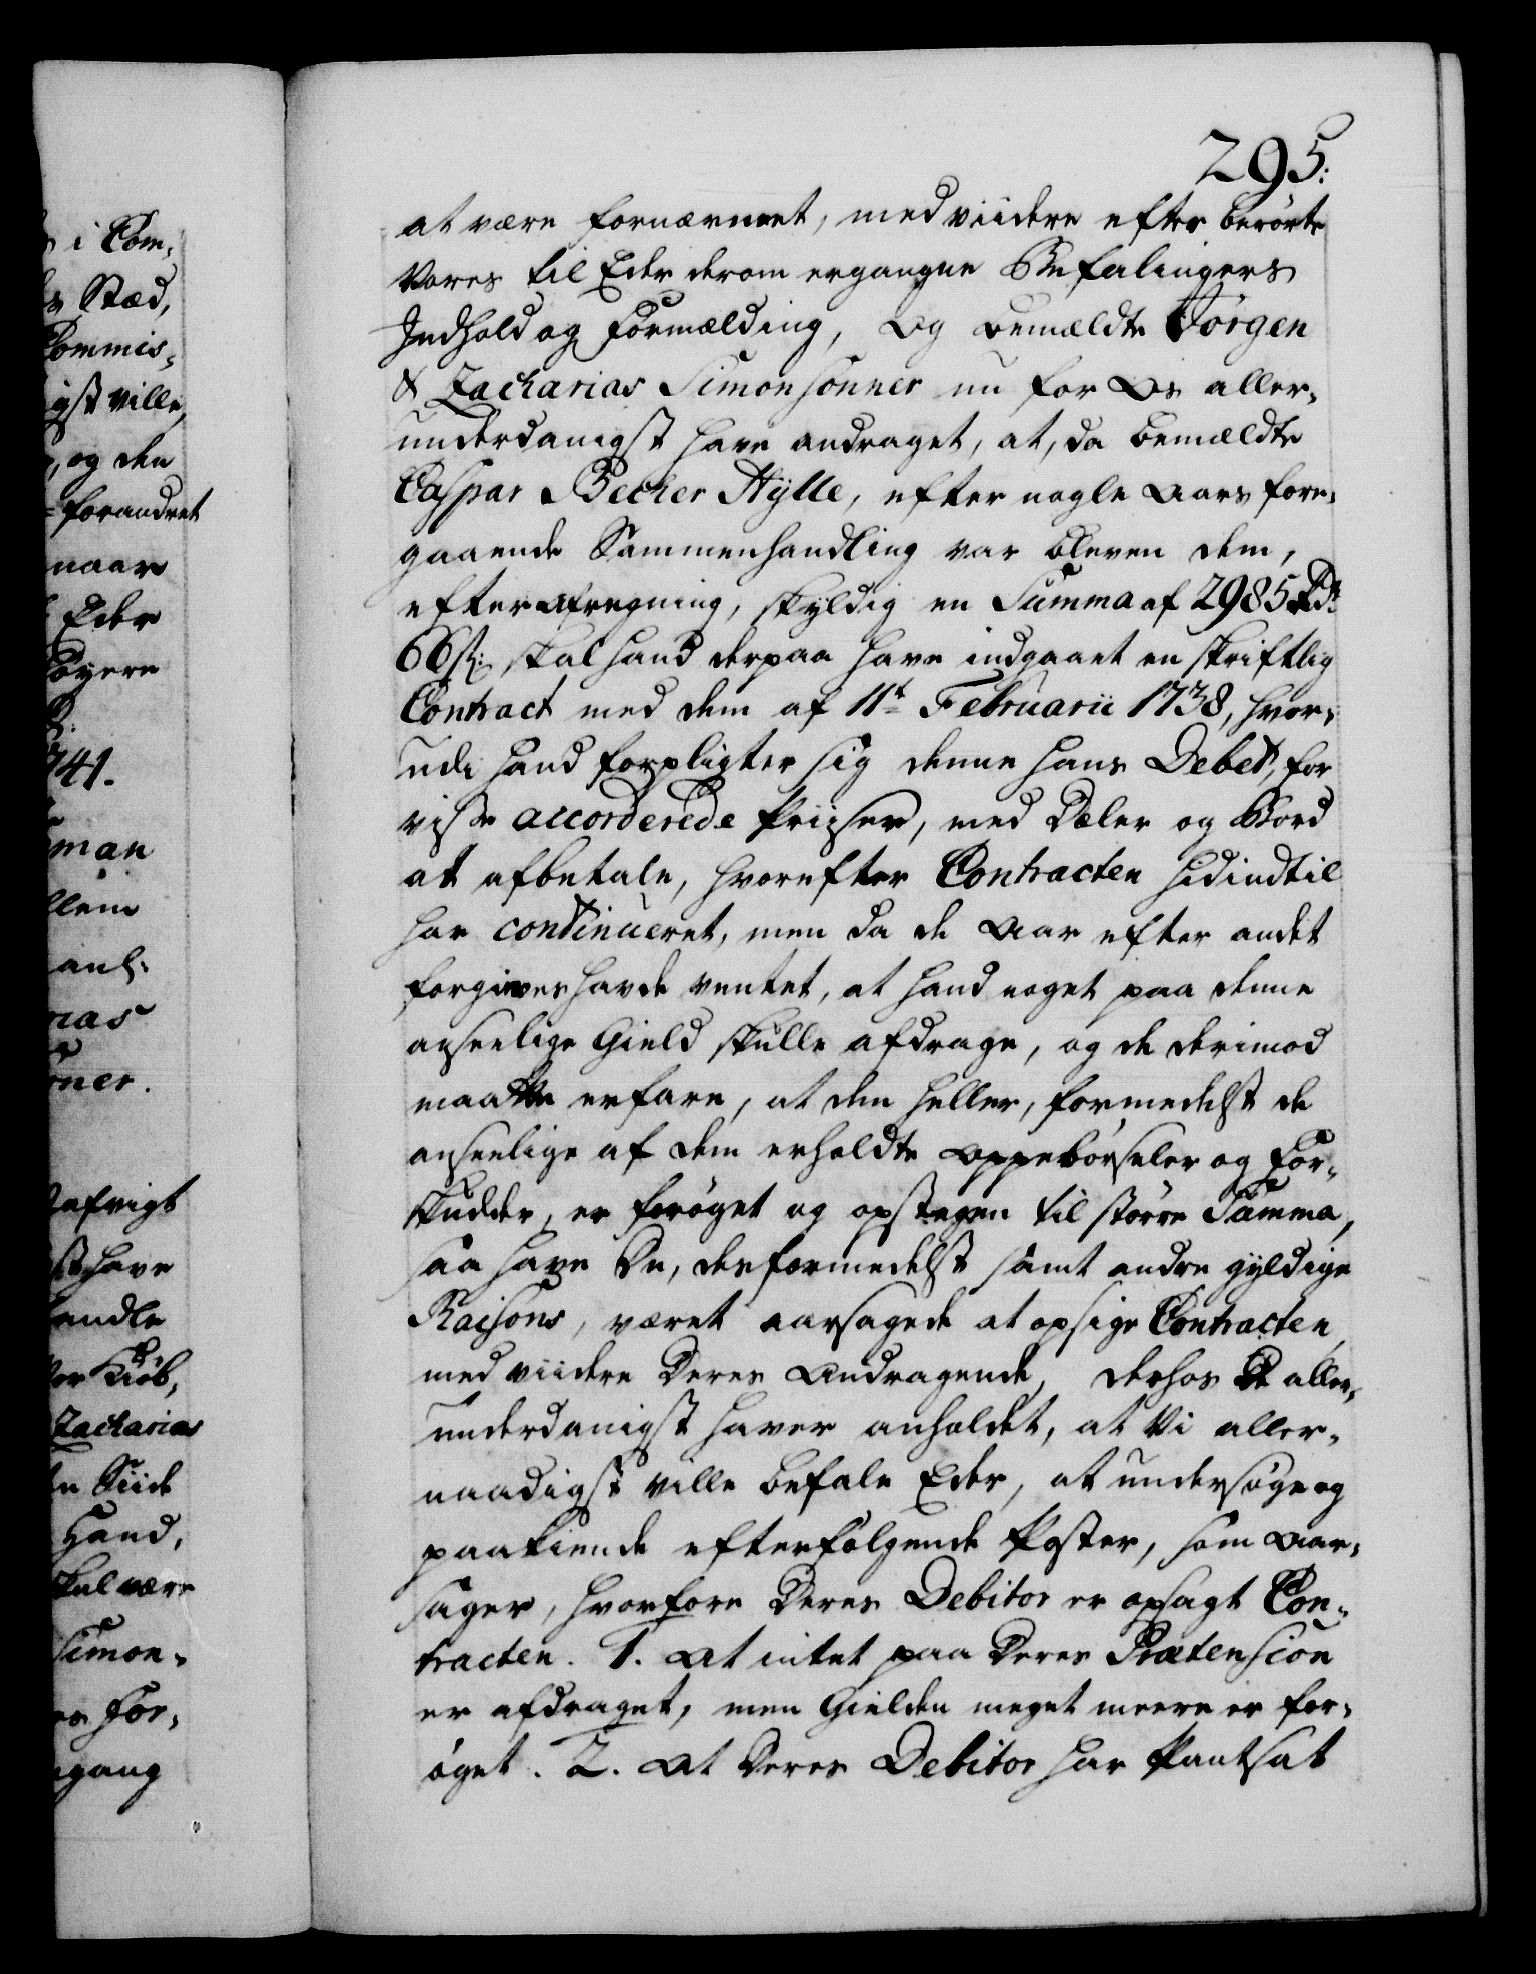 295:
at være fornærmet, med viidere efter berørte
Vores til Eder derom ergangne Befalingers
Indhold og Formælding, Og bemældte Jörgen
& Zacharias Simonsönner nu for Os aller-
underdanigst have andraget, at, da bemældte
Caspar Becher Hÿlle, efter nogle Aars fore-
gaaende Sammenhandling var bleven dem,
efter Afregning, skyldig en Summa af 2985 Rdr
66 sk: skal hand derpaa have indgaaet en skriftlig
Contract med dem af 11t Februarii 1738, hvor-
udi hand forpligter sig denne hans Debet, for
visse accorderede Priiser, med Dæler og Bord
at afbetale, hvorefter Contracten hidindtil
har continueret, men da de Aar efter andet
forgieves havde ventet, at hand noget paa denne
anseelige Gield skulle afdrage, og de derimod
maatte erfare, at den heller, formedelst de
anseelige af dem erholdte Oppebørseler og For-
skudder, er forøget og opstegen til større Summa,
saa have De, desformedelst samt andre gyldige
Raisons, været aarsagede at opsige Contracten,
med viidere Deres Andragende, derhos De aller-
underdanigst haver anholdet, at Vi aller-
naadigst ville befale Eder, at undersøge og
paakiende efterfølgende Poster, som Aar-
sager, hvorfore Deres Debitor er opsagt Con-
tracten. 1. At intet paa Deres Prætension
er afdraget, men Gielden meget meere er for-
øget. 2. At Deres Debitor har Pantsat
i Com-
Stæd,
Commis-
gst ville,
, og den
forandret
naar
Eder
øyere
741.
man
llene
anl-
rias
ner.
afvigt
st have
andle
or Kiöb-
Zacharias
n Siide
Hand,
skal være
Simon-
es For-
gang